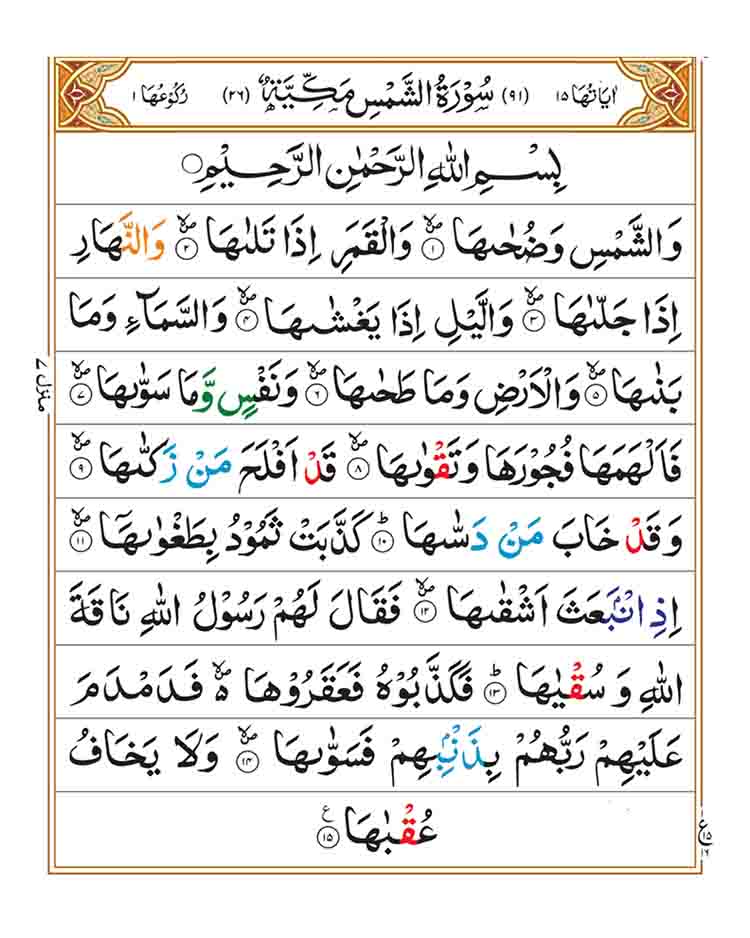 اٰيَاتُهَا ١٥ (٩١) سُوْرَةُ الشَّمْسِ مَكِّيَّةٌ (٢٦) رُكُوْعُهَا ١
بِسْمِ اللّٰهِ الرَّحْمٰنِ الرَّحِيْمِ
وَالشَّمْسِ وَضُحٰىهَا ۙ١ وَالْقَمَرِ اِذَا تَلٰىهَا ۙ٢ وَالنَّهَارِ
اِذَا جَلّٰىهَا ۙ٣ وَالَّيْلِ اِذَا يَغْشٰىهَا ۙ٤ وَالسَّمَآءِ وَمَا
بَنٰىهَا ۙ٥ وَالْاَرْضِ وَمَا طَحٰىهَا ۙ٦ وَنَفْسٍ وَّمَا سَوّٰىهَا ۙ٧
فَاَلْهَمَهَا فُجُوْرَهَا وَتَقْوٰىهَا ۙ٨ قَدْ اَفْلَحَ مَنْ زَكّٰىهَا ۙ٩
وَقَدْ خَابَ مَنْ دَسّٰىهَا ؕ١٠ كَذَّبَتْ ثَمُوْدُ بِطَغْوٰىهَاۤ ۙ١١
اِذِ انْۢبَعَثَ اَشْقٰىهَا ۙ١٢ فَقَالَ لَهُمْ رَسُوْلُ اللّٰهِ نَاقَةَ
اللّٰهِ وَسُقْيٰهَا ؕ١٣ فَكَذَّبُوْهُ فَعَقَرُوْهَا ۙ۬ فَدَمْدَمَ
عَلَيْهِمْ رَبُّهُمْ بِذَنْۢبِهِمْ فَسَوّٰىهَا ۙ١٤ وَلَا يَخَافُ
عُقْبٰهَا ١٥ ع
منزل ٧
ع ١٥ ١٦